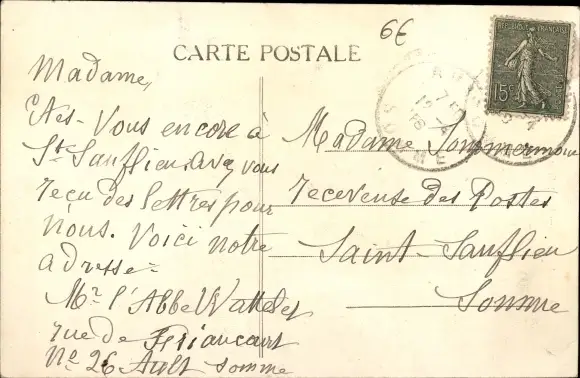 6€
CARTE POSTALE
REPUBLIQUE FRANÇAISE
15c
Madame,
Etes-vous encore à
St Sauflieu, avez vous
reçu des lettres pour
nous. Voici notre
adresse =
Mr l'Abbé Watteley
rue de Friaucourt
No 26 Ault Somme
Madame
receveuse des Postes
Saint-Sauflieu
Somme